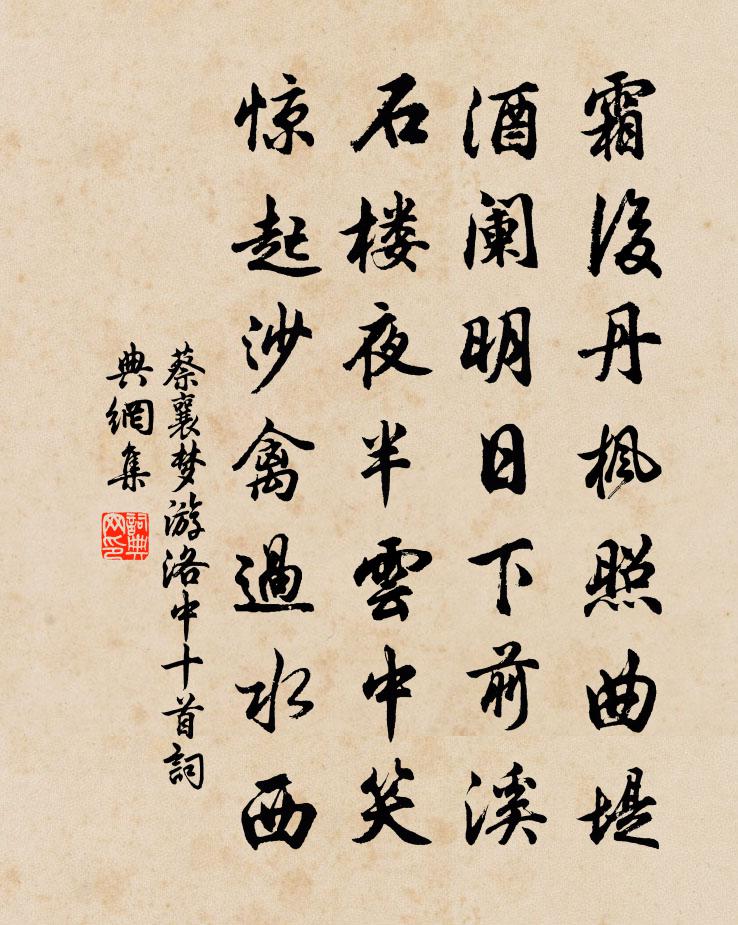 霜後丹枫照曲堤
酒阑明日下前溪
石楼夜半雲中笑
惊起沙禽過水西
蔡襄梦游洛中十首詞
典網集
詞典网印